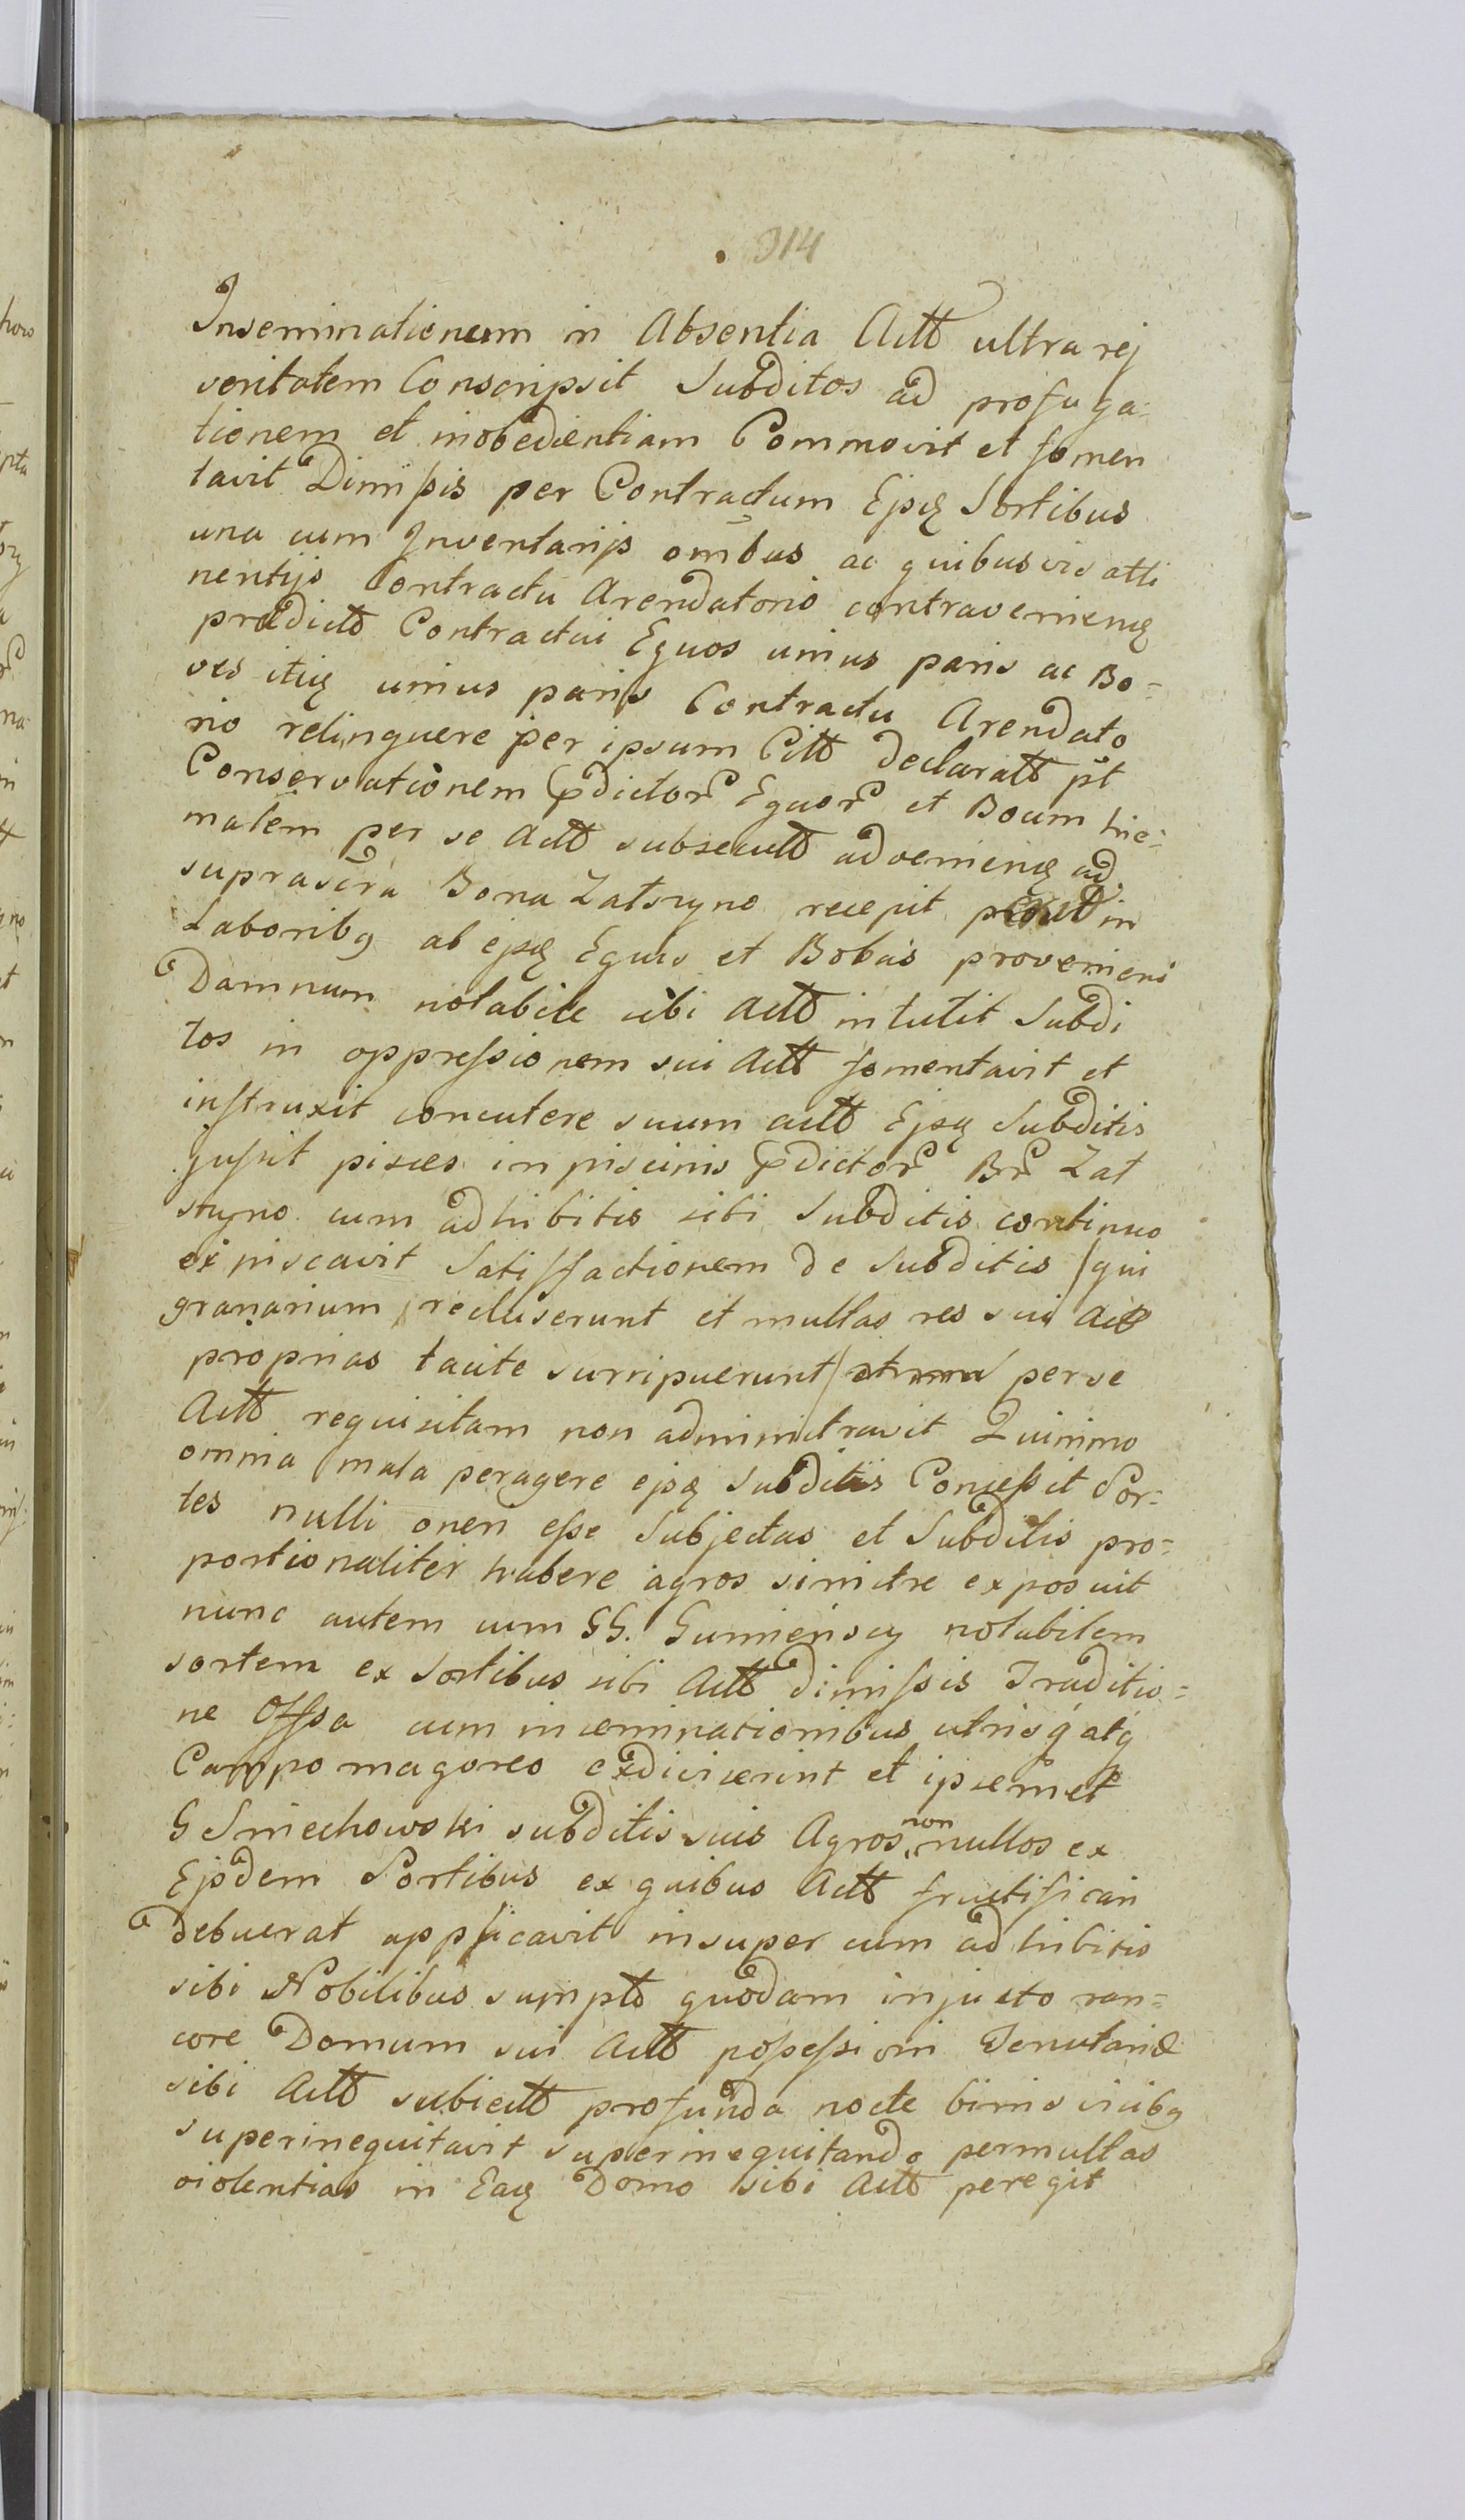 314
Inseminationem in Absentia Actt ultra rej
veritatem Conscripsit Subditos ad profuga-
tionem et inobedientiam Commovit et fomen
tavit Dimissis per Contractum Ejsdę Sortibus
una cum Inventarijs omībus ac quibusvis atti
nentijs Contractu Arendatorio contraveniendę
prædictt Contractui Equos unius paris ac Bo=
ves itię unius paris Contractu Arendato
rio relinquere per ipsum Citt declaratt pt
Conservationem pdictor Equor et Boum hie=
malem per se Actt subsecutt adveniendę ad
suprascra Bona Zatszyno recepit prout in
Laboribq ab ejsdę Equis et Bobus proveniens
Damnum notabile sibi Actt intulit Subdi
tos in oppressionem sui Actt fomentavit et
instruxit concutere suum actt Ejsdę Subditis
jussit pisces in piscinis pdictor Br Zat
szyno cum adhibitis sibi Subditis continuo
expiscavit Satisfactionem de Subditis /qui
granarium recluserunt et multas res sui Actt
proprias tacite surripuerunt/ per se
Actt requisitam non administravit Quinimo
omnia mala peragere ejsdę Subditis Concessit Sor=
tes nulli oneri esse Subjectas et Subditis pro=
portionaliter habere agros sinistre exposuit
nunc autem cum GG. Gumienscy notabilem
sortem ex Sortibus sibi Actt dimissis Traditio=
ne Offsa cum inseminationibus utrisq atq
Campo magoreo exdiviserint et ipsemet
G Smiechowski subditis suis Agros non nullos ex
Ejsdem Sortibus ex quibus Actt fructificari
debuerat applicavit insuper cum adhibitis
sibi Nobilibus sumptt quodam injusto ran=
core Domum sui Actt possessioni Tenutariæ
sibi Actt subiectt profunda nocte binis vicibq
superinequitavit superinequitando permultas
violentias in Eadę Domo sibi Actt peregit